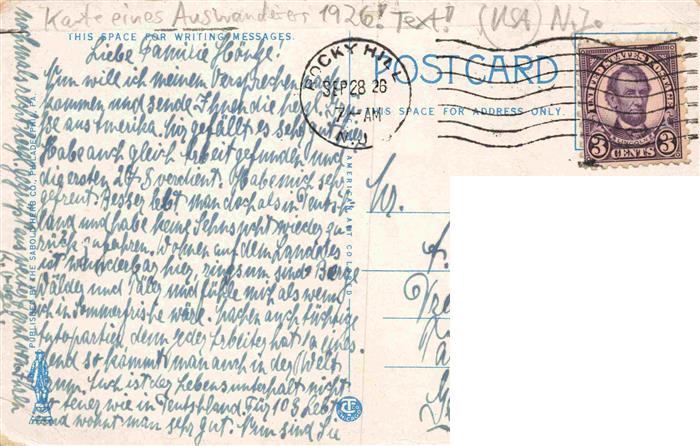 Karte eines Auswanderer 1926! Text! (USA) N.J.
THIS SPACE FOR WRITING MESSAGES.
POST CARD
THIS SPACE FOR ADDRESS ONLY.
ROCKY HILL
SEP 28 26
7-AM
N.J.
UNITED STATES POSTAGE
LINCOLN
3 CENTS 3
Liebe Familie
Nun will ich meinem Versprechen nach
kommen und sende Ihnen die herzl. Grü-
ße aus Amerika. hier gefällt es sehr gut
Habe auch gleich Arbeit gefunden und
die ersten 20 $ verdient. Habe mich sehr
gefreut. Besser lebt man doch als in Deutsch
land und habe keine Sehnsucht wieder zu-
rück zu fahren. Wohnen auf dem Lande es
ist wunderbar hier, rings um sind Berge
Wälder und Täler und fühle mich als wenn
ich in Sommerfrische wäre. Machen auch tüchtige
Autopartien denn jeder Arbeiter hat ja eines
und so kommt man auch in der Welt
rum. Auch ist der Lebensunterhalt nicht
so teuer wie in Deutschland. Für 10 $ lebt
und wohnt man sehr gut. Nun sind Sie
PUBLISHED BY THE SABOLD-HERB CO., PHILADELPHIA, PA.
AMERICAN ART CO LORED